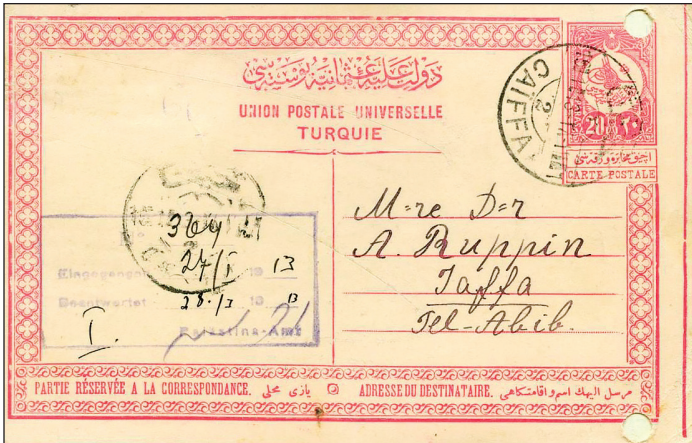 دولت عليه عثمانيه پوستەسی
UNION POSTALE UNIVERSELLE
TURQUIE
CAIFFA
2
20 ٢٠
آچيق مخابره ورقەسی
CARTE POSTALE
364
Eingegangen 27/I 19 13
Beantwortet 28./I 19 13
Palästina-Amt
I.
M=re D=r
A. Ruppin
Jaffa
Tel-Abib.
PARTIE RÉSERVÉE A LA CORRESPONDANCE. يازی محلی
ADRESSE DU DESTINATAIRE. مرسل اليهك اسم واقامتگاهی